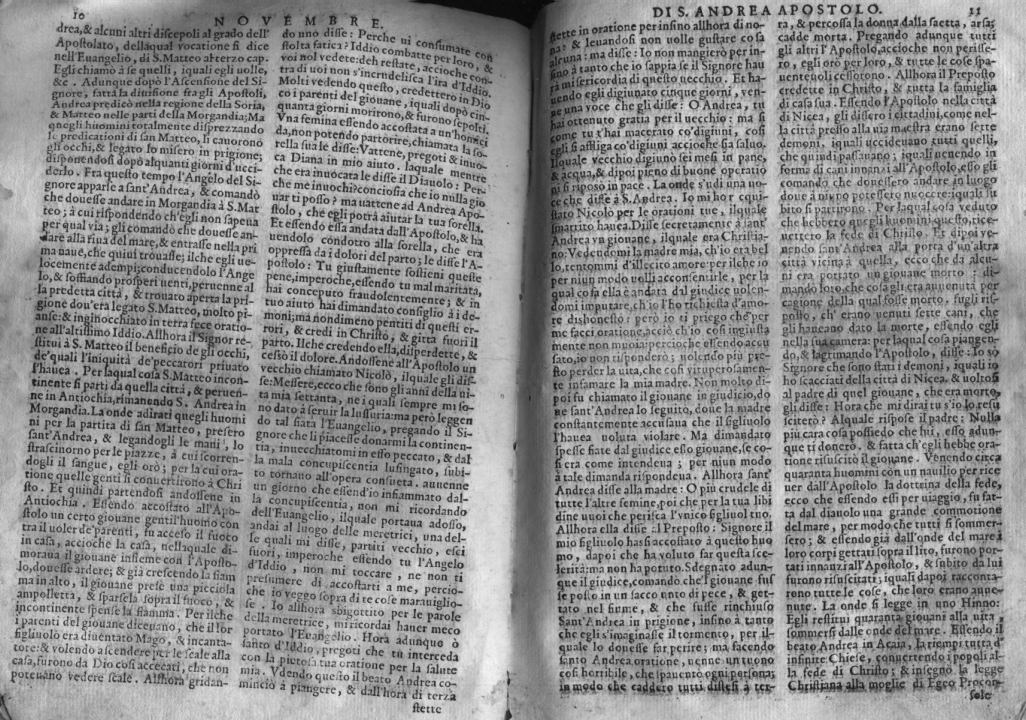 10
NOVEMBRE.
drea, & alcuni altri discepoli al grado dell'
Apostolato, dellaqual vocatione si dice
nell'Euangelio, di S. Matteo al terzo cap.
Egli chiamò a se quelli, iquali egli uolle,
&c. Adunque dopò l'Ascensione del Si-
gnore, fatta la diuisione fra gli Apostoli,
Andrea predicò nella regione della Soria,
& Matteo nelle parti della Morgandia; Ma
quegli huomini totalmente disprezzando
le predicationi di san Matteo, li cauorono
gli occhi, & legato lo misero in prigione;
disponendosi dopo alquanti giorni d'ucci-
derlo. Fra questo tempo l'Angelo del Si-
gnore apparse a sant'Andrea, & comandò
che douesse andare in Morgandia à S. Mat
teo; à cui rispondendo ch'egli non sapeua
per qual via; gli comandò che douesse an-
dare alla riua del mare, & entrasse nella pri
ma naue, che quiui trouasse; ilche egli ue-
locemente adempì; conducendolo l'Ange
lo, & soffiando prosperi uenti, peruenne al
la predetta città, & trouato aperta la pri-
gione dou'era legato S. Matteo, molto pi-
anse: & inginocchiato in terra fece oratio-
ne all'altissimo Iddio. Allhora il Signor re-
stituì à S. Matteo il beneficio de gli occhi,
de' quali l'iniquità de' peccatori priuato
l'hauea. Per laqual cosa S. Matteo incon-
tinente si partì da quella città, & peruen-
ne in Antiochia, rimanendo S. Andrea in
Morgandia. La onde adirati quegli huomi
ni per la partita di san Matteo, presero
sant'Andrea, & legandogli le mani, lo
strascinorno per le piazze, à cui scorren-
dogli il sangue, egli orò; per la cui ora-
tione quelle genti si conuertirono à Chri
sto. Et quindi partendosi andossene in
Antiochia. Essendo accostato all'Apo-
stolo un certo giouane gentil'huomo con
tra il uoler de' parenti, fu acceso il fuoco
in casa, accioche la casa, nellaquale di-
moraua il giouane insieme con l'Aposto-
lo, douesse ardere; & già crescendo la fiam
ma in alto, il giouane prese una picciola
ampolletta, & sparsela sopra il fuoco, &
incontinente spense la fiamma. Per ilche
i parenti del giouane diceuano, che il lor
figliuolo era diuentato Mago, & incanta-
tore: & volendo ascendere per le scale alla
casa, furono da Dio così accecati, che non
poteuano vedere scale. Allhora gridan-
do uno disse: Perche ui consumate con
stolta fatica? Iddio combatte per loro, &
voi nol vedete: deh restate, accioche con-
tra di uoi non s'incrudelisca l'ira d'Iddio.
Molti vedendo questo, credettero in Dio
co i parenti del giouane, iquali dopò cin-
quanta giorni morirono, & furono sepolti.
Vna femina essendo accostata a un'homici
da, non potendo partorire, chiamata la so-
rella sua le disse: Vattene, pregoti & inuo-
ca Diana in mio aiuto, laquale mentre
che era inuocata le disse il Diauolo: Per-
che me inuochi? conciosia che io nulla gio
uar ti posso? ma uattene ad Andrea Apo-
stolo, che egli potrà aiutar la tua sorella.
Et essendo essa andata dall'Apostolo, & ha
uendolo condotto alla sorella, che era
oppressa da i dolori del parto; le disse l'A-
postolo: Tu giustamente sostieni queste
pene, imperoche, essendo tu mal maritata,
hai conceputo fraudolentemente; & in
tuo aiuto hai dimandato consiglio à i de-
moni; ma nondimeno pentiti di questi er-
rori, & credi in Christo, & gitta fuori il
parto. Ilche credendo ella, disperdette, &
cessò il dolore. Andossene all'Apostolo un
vecchio chiamato Nicolò, ilquale gli dis-
se: Messere, ecco che sono gli anni della ui-
ta mia settanta, ne i quali sempre mi so-
no dato à seruir la lussuria: ma però leggen
do tal fiata l'Euangelio, pregando il Si-
gnore che li piacesse donarmi la continen-
tia, inuecchiatomi in esso peccato, & dal
la mala concupiscentia lusingato, subi-
to tornauo all'opera consueta. auuenne
un giorno che essend'io infiammato dal-
la concupiscentia, non mi ricordando
dell'Euangelio, ilquale portaua adosso,
andai al luogo delle meretrici, una del-
le quali mi disse, partiti vecchio, esci
fuori, imperoche essendo tu l'Angelo
d'Iddio, non mi toccare, ne non ti
presumere di accostarti a me, percio-
che io veggo sopra di te cose marauiglio-
se. Io allhora sbigottito per le parole
della meretrice, mi ricordai hauer meco
portato l'Euangelio. Hora adunque ò
santo d'Iddio, pregoti che tu interceda
con la pietosa tua oratione per la salute
mia. Vdendo questo il beato Andrea co-
minciò à piangere, & dall'hora di terza
stette
DI S. ANDREA APOSTOLO.
11
stette in oratione per insino allhora di no-
na: & leuandosi non uolle gustare cosa
alcuna: ma disse: Io non mangierò per in-
sino à tanto che io sappia se il Signore hau
rà misericordia di questo uecchio. Et ha-
uendo egli digiunato cinque giorni, ven-
ne una voce che gli disse: O Andrea, tu
hai ottenuto gratia per il uecchio: ma si
come tu t'hai macerato co' digiuni, così
egli si affliga co' digiuni accioche sia saluo.
Ilquale vecchio digiunò sei mesi in pane,
& acqua, & dipoi pieno di buone operatio
ni si riposò in pace. La onde s'udì una uo-
ce che disse à S. Andrea. Io mi ho r cqui-
stato Nicolò per le orationi tue, ilquale
smarrito hauea. Disse secretamente à sant'
Andrea vn giouane, ilquale era Christia-
no: Vedendomi la madre mia, ch'io era bel
lo, tentommi d'illecito amore: per ilche io
per niun modo uolli acconsentirle, per la
qual cosa ella è andata dal giudice uolen-
domi imputare, ch'io l'ho richiesta d'amo-
re dishonesto: però io ti priego che per
me facci oratione, acciò ch'io così ingiusta
mente non muoia: percioche essendo accu
sato, io non risponderò; uolendo più pre-
sto perder la uita, che così vituperosamen-
te infamare la mia madre. Non molto di-
poi fu chiamato il giouane in giudicio, do
ue sant'Andrea lo seguitò, doue la madre
constantemente accusaua che il figliuolo
l'hauea uoluta violare. Ma dimandato
spesse fiate dal giudice esso giouane, se co-
sì era come intendeua; per niun modo
à tale dimanda rispondeua. Allhora sant'
Andrea disse alla madre: O più crudele di
tutte l'altre femine, poi che per la tua libi
dine uuoi che perisca l'vnico figliuol tuo.
Allhora ella disse al Preposto: Signore il
mio figliuolo hassi accostato à questo huo
mo, dapoi che ha voluto far questa sce-
lerità: ma non ha potuto. Sdegnato adun-
que il giudice, comandò che'l giouane fus
se posto in un sacco unto di pece, & get-
tato nel fiume, & che fusse rinchiuso
Sant'Andrea in prigione, insino à tanto
che egli s'imaginasse il tormento, per il-
quale lo douesse far perire; ma facendo
santo Andrea oratione, uenne un tuono
così horribile, che spauentò ogni persona;
in modo che caddero tutti distesi à ter-
ra, & percossa la donna dalla saetta, arsa,
cadde morta. Pregando adunque tutti
gli altri l'Apostolo, accioche non perisse-
ro, egli orò per loro, & tutte le cose spa-
uenteuoli cessorono. Allhora il Preposto
credette in Christo, & tutta la famiglia
di casa sua. Essendo l'Apostolo nella città
di Nicea, gli dissero i cittadini, come nel-
la città presso alla uia maestra erano sette
demoni, iquali uccideuano tutti quelli,
che quindi passauano; iquali uenendo in
forma di cani innanzi all'Apostolo, esso gli
comandò che douessero andare in luogo
doue à niuno potessero nuocere: iquali su
bito si partirono. Per laqual cosa veduto
che hebbero quegli huomini questo, rice-
uettero la fede di Christo. Et dipoi ve-
nendo sant'Andrea alla porta d'un'altra
città vicina à quella, ecco che da alcu-
ni era portato un giouane morto: di-
mandò loro, che cosa gli era auuenuta per
cagione della qual fosse morto. fugli ris-
posto, ch'erano uenuti sette cani, che
gli haueano dato la morte, essendo egli
nella sua camera: per laqual cosa piangen-
do, & lagrimando l'Apostolo, disse: Io so
Signore che sono stati i demoni, iquali io
ho scacciati della città di Nicea. & uoltosi
al padre di quel giouane, che era morto,
gli disse: Hora che mi dirai tu s'io lo resu
sciterò? Alquale rispose il padre: Nulla
più cara cosa possiedo che lui, esso adun-
que ti donerò, & fatta ch'egli hebbe ora-
tione risuscitò il giouane. Venendo circa
quaranta huomini con un nauilio per rice
uer dall'Apostolo la dottrina della fede,
ecco che essendo essi per uiaggio, fu fat-
ta dal diauolo una grande commotione
del mare, per modo che tutti si sommer-
sero; & essendo già dall'onde del mare i
loro corpi gettati sopra il lito, furono por-
tati innanzi all'Apostolo, & subito da lui
furono risuscitati; iquali dapoi racconta-
rono tutte le cose, che loro erano auue-
nute. La onde si legge in uno Hinno:
Egli restituì quaranta giouani alla uita,
sommersi dalle onde del mare. Essendo il
beato Andrea in Acaia, la riempì tutta d'
infinite Chiese, conuertendo i popoli al-
la fede di Christo; & insegnò la legge
Christiana alla moglie di Egeo Procon-
solo